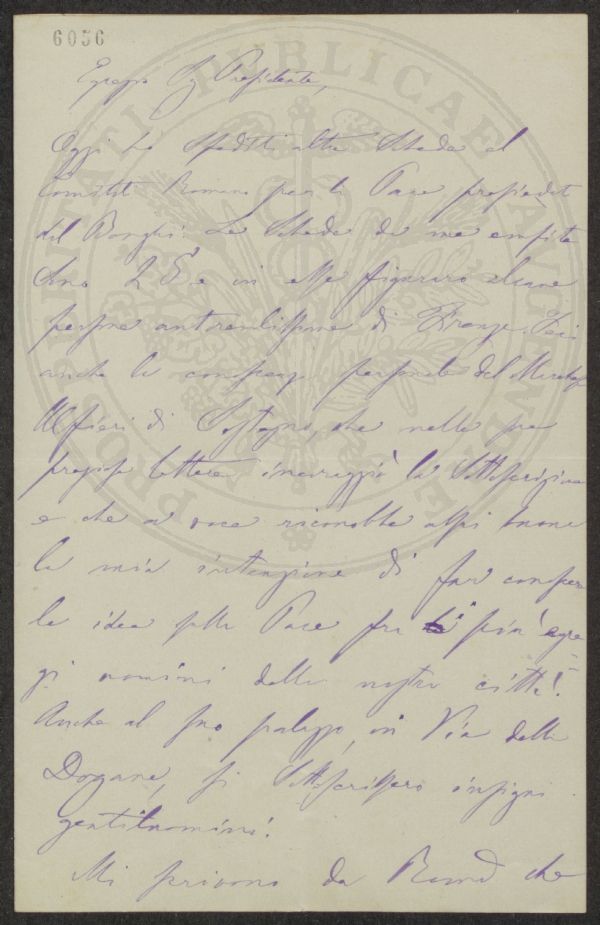 6056
Egregio Sig Presidente,
Oggi ho spediti altre schede al
Comitato Romano per la Pace presieduto
dal Bonghi. Le schede da me empite
sono 25 e in esse figurano alcune
persone autorevolissime di Firenze. Feci
anche la conoscenza personale del Marchese
Alfieri di Sostegno, che nella sua
pregiata lettera incoraggiò la sottoscrizione
e che a voce riconobbe assai buona
la mia intenzione di far conoscere
le idee sulla Pace fra i più egre-
gi uomini della nostra città!
Anche al suo palazzo, in Via della
Dogana, si sottoscrissero insigni
gentiluomini.
Mi scrivono da Roma che